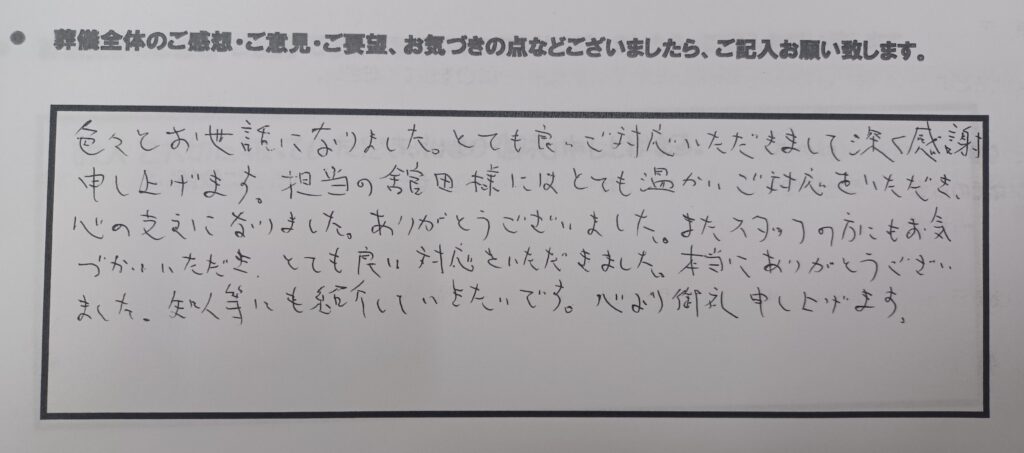 ● 葬儀全体のご感想・ご意見・ご要望、お気づきの点などございましたら、ご記入お願い致します。
色々とお世話になりました。とても良いご対応いただきまして深く感謝
申し上げます。担当の舘田様にはとても温かいご対応をいただき、
心の支えになりました。ありがとうございました。またスタッフの方にもお気
づかいいただき、とても良い対応をいただきました。本当にありがとうござい
ました。知人等にも紹介していきたいです。心より御礼申し上げます。